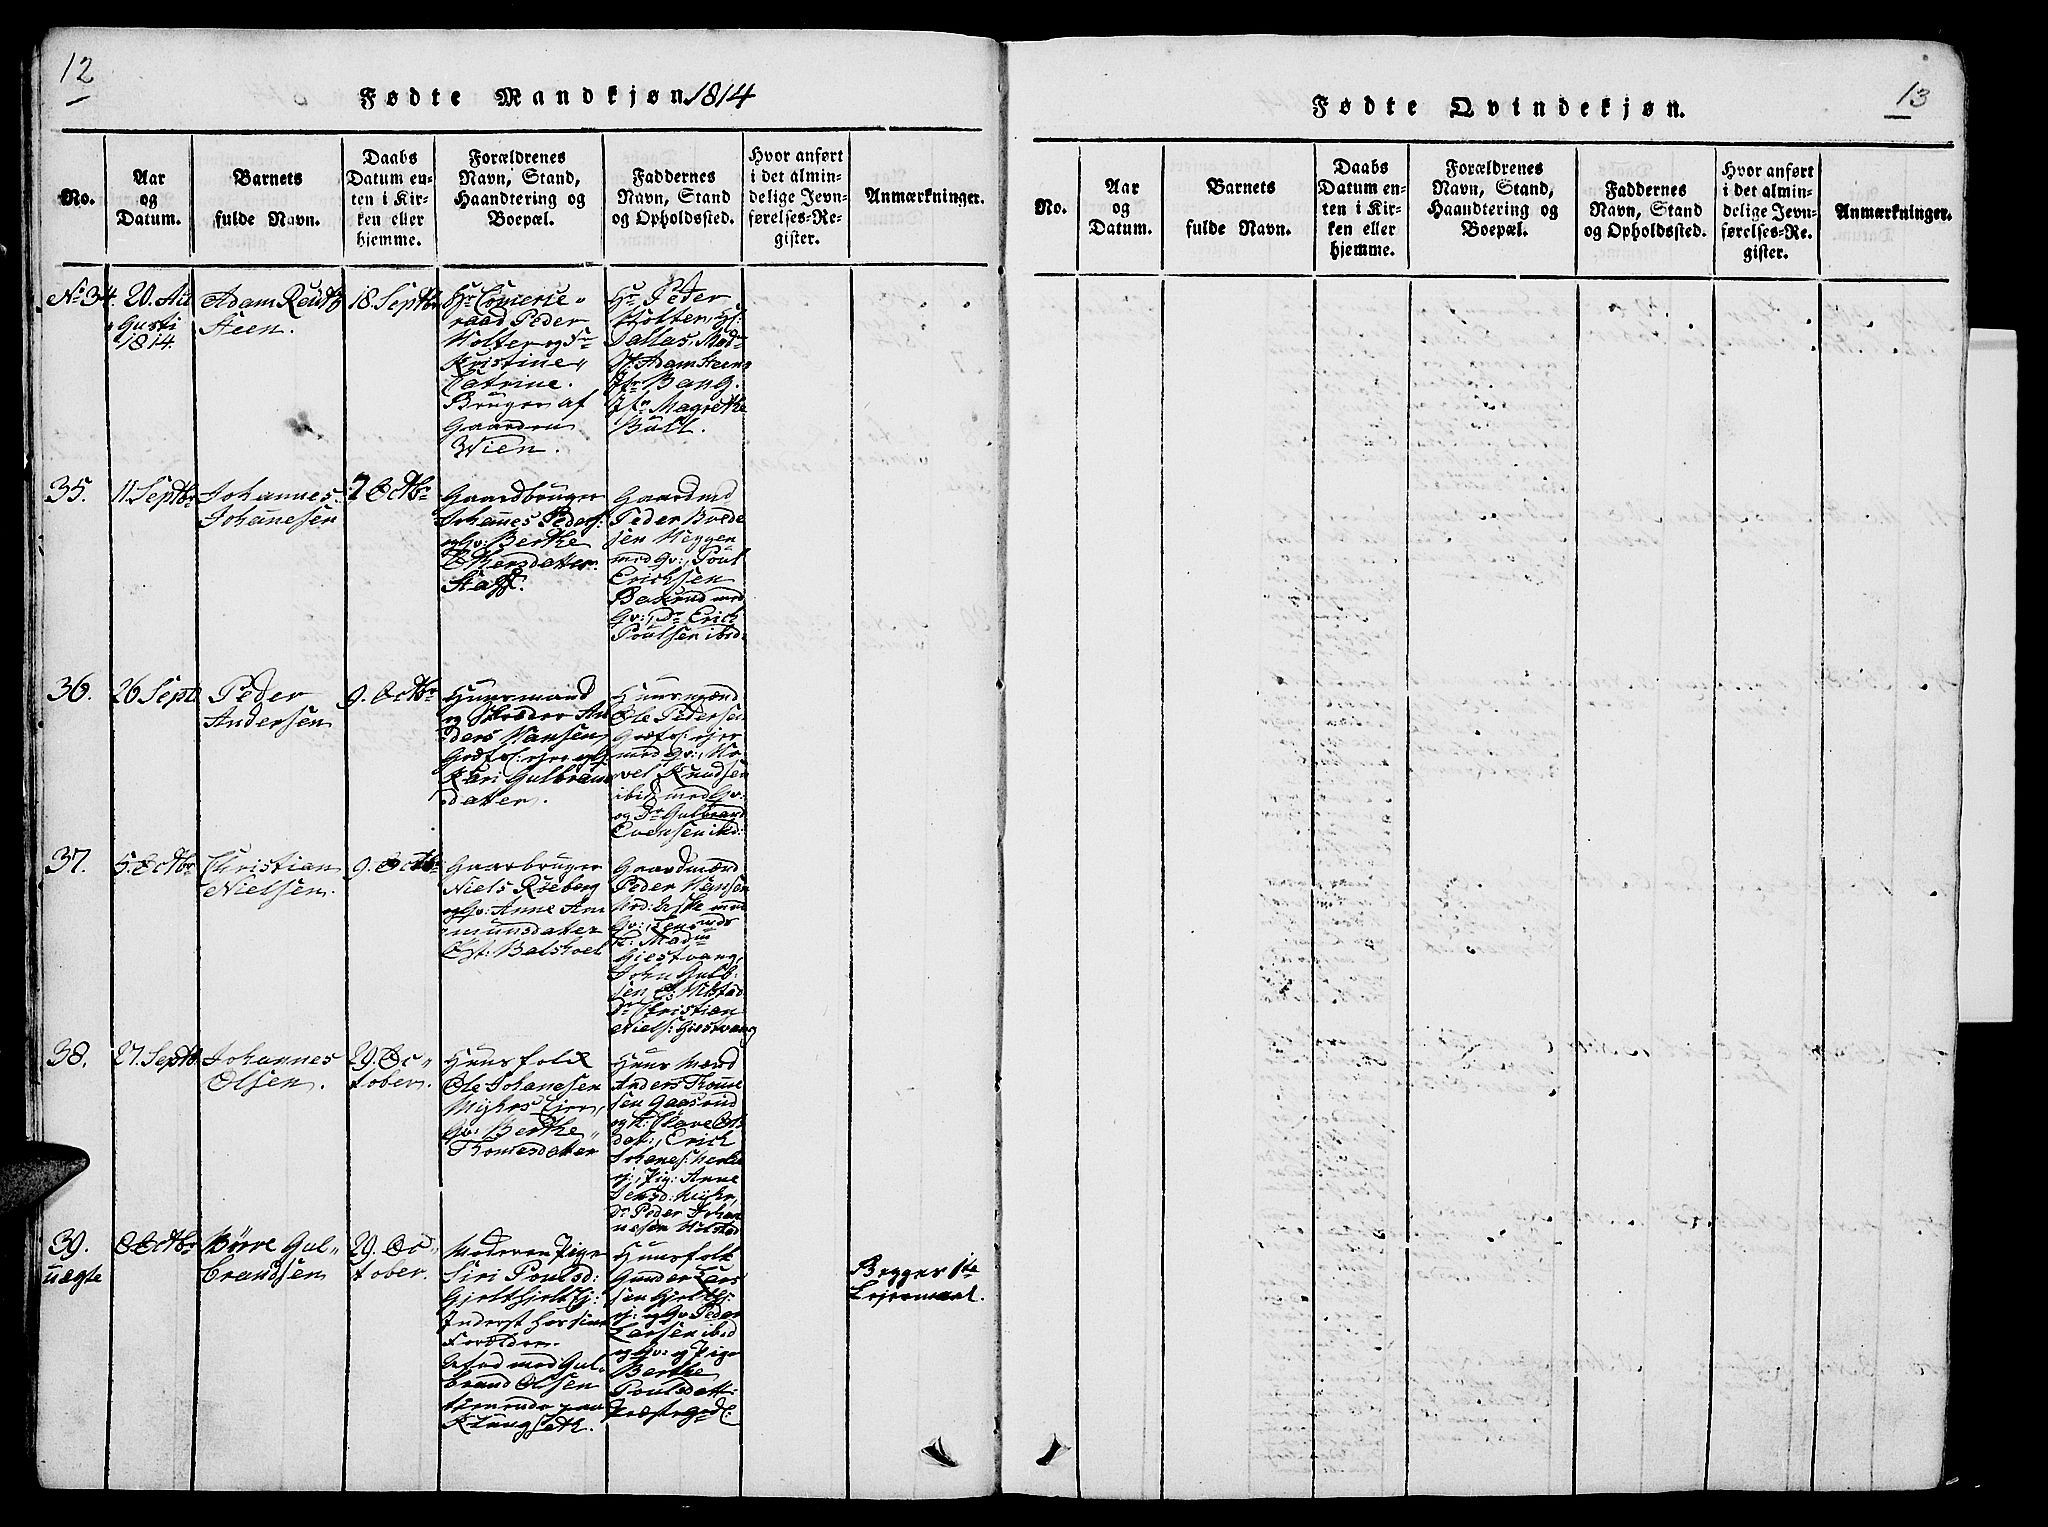 12
Fødte Mandkjøn 1814
No.
Aar
og
Datum.
Barnets
fulde Navn.
Daabs
Datum en-
ten i Kir-
ken eller
hjemme.
Forældrenes
Navn, Stand,
Haandtering og
Boepæl.
Faddernes
Navn, Stand
og Opholdssted.
Hvor anført
i det almin-
delige Jevn-
førelses-Re-
gister.
Anmærkninger.
No 34.
20. Au
gusti
1814.
Adam
Steen.
18 Septbr
Hr
raad Peder
Holter og
Kristine
Catrine.
Bruger af
Gaarden
Wien.
Hr. Peder
Holter,
Adam Steen
Jfr Bang.
Jfr Magrethe
Bull.
35.
11 Septbr
Johannes
Johanesen
2 Octbr
Gaardbruger
Johanes Peders:
og Qv: Berthe
Staff.
Gaardmd
Peder
sen Heggen
med Qv:, Poul
Erichsen
med
Qv:, Dr Erich
Poulsen ibid:
36.
26 Sept
Peder
Andersen
9. Octbr
Huusmand
og Skræder An
ders Hansen,
Kari Gulbran
dater.
Huusmænd
Ole Pedersen
med Qv:,
Knudsen
ibid med Qv:
og Dr Gulbrand
Evensen ibid:
37.
5. Octbr
Christian
Nielsen.
9. Octbr
Gaarbruger
Niels Roeberg
og Qv: Anne Am
munsdater
Øst: Balshoel
Gaardmænd
Peder Hansen
med
Qv:,
Giestvang,
John Gulb:
sen
Dr Christian
Niels: Giestvang
38.
27. Septb.
Johannes
Olsen.
29. Oc
tober.
Huusfolk
Ole Johanesen
Myhrs Eier,
Qv: Berthe
Tomesdater
Huusmænd
Anders Tome
sen Gaasrud
dat:, Erich
Johanes:
Pig: Anne
Jensd: Myhr,
Dr Peder Johan
nesen
39.
uægte
Octbr
Børre Gul
brandsen
29. Oc
tober.
Moderen Pige
Siri Poulsd:
Inderst hos sine
Forældre.
Avlad med Gul
brand Olsen
tienende paa
Klungseth.
Huusfolk
Gunder Lars
sen
og Qv Peder
Larsen ibid
og Qv: og Pige
Berthe
Poulsdatt:
Begges 1te
Leiermaal.
13
Fødte Qvindekjøn.
No.
Aar
og
Datum.
Barnets
fulde Navn.
Daabs
Datum en-
ten i Kir-
ken eller
hjemme.
Forældrenes
Navn, Stand,
Haandtering og
Boepæl.
Faddernes
Navn, Stand
og Opholdssted.
Hvor anført
i det almin-
delige Jevn-
førelses-Re-
gister.
Anmærkninger.